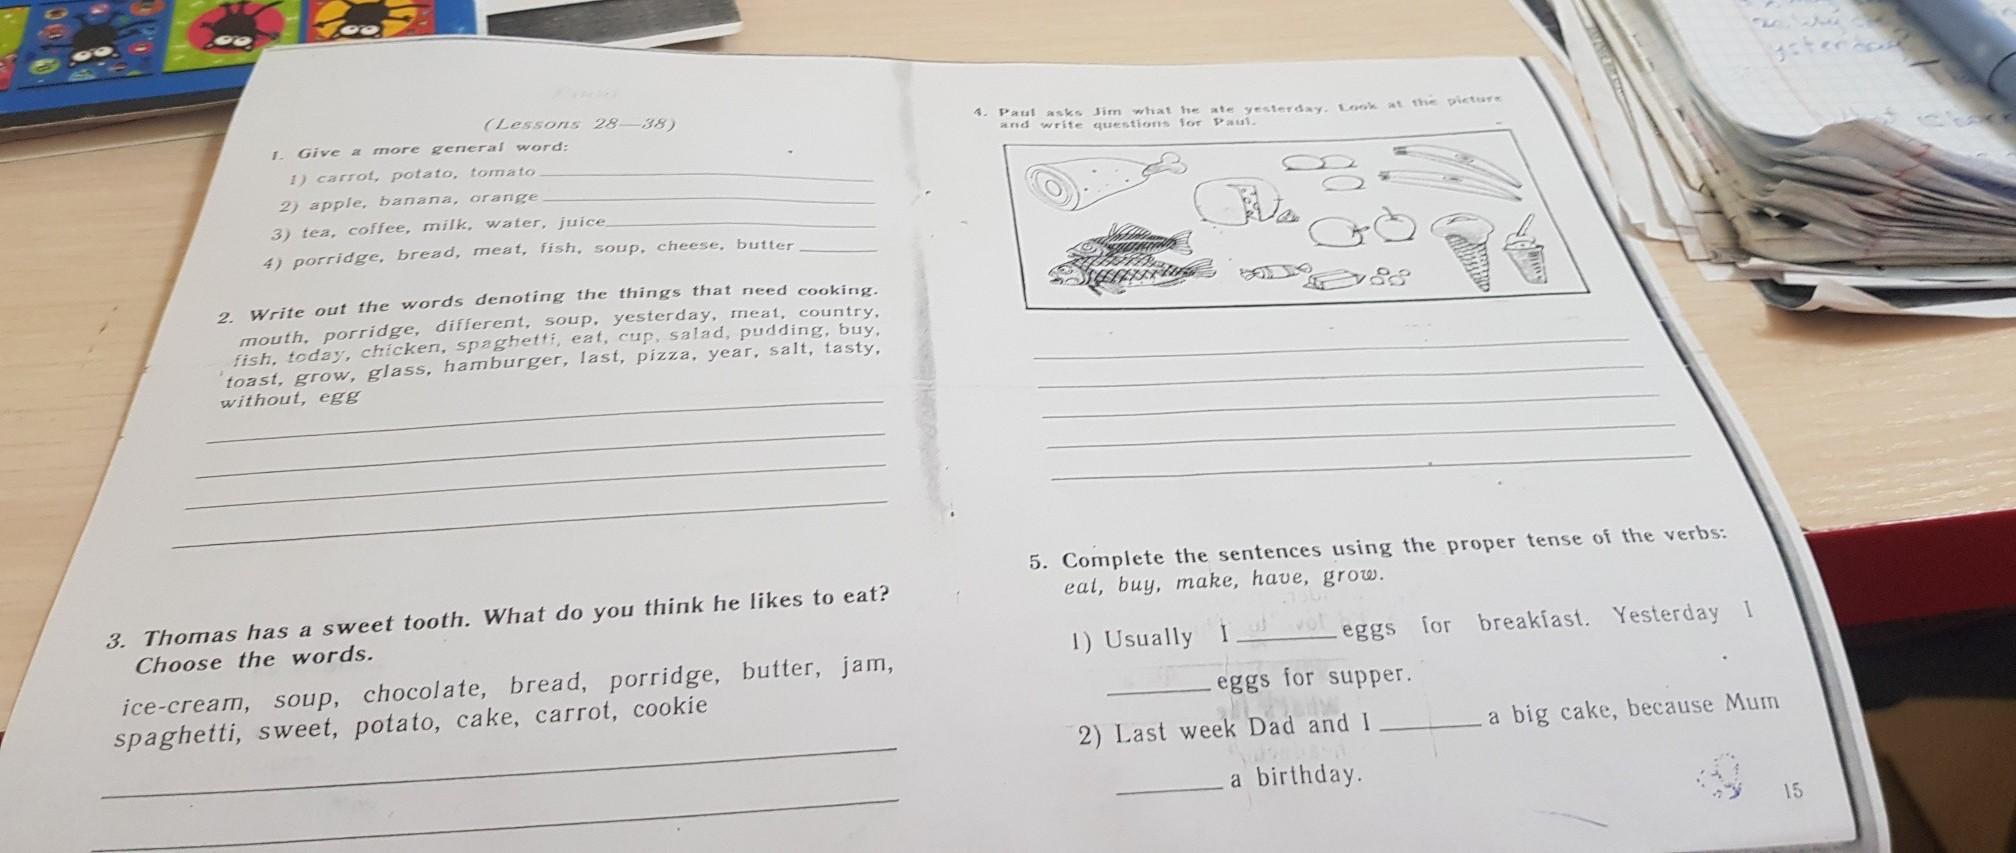 (Lessons 28—38)
1. Give a more general word:
1) carrot, potato, tomato
2) apple, banana, orange
3) tea, coffee, milk, water, juice
4) porridge, bread, meat, fish, soup, cheese, butter
2. Write out the words denoting the things that need cooking.
mouth, porridge, different, soup, yesterday, meat, country,
fish, today, chicken, spaghetti, eat, cup, salad, pudding, buy,
toast, grow, glass, hamburger, last, pizza, year, salt, tasty,
without, egg
3. Thomas has a sweet tooth. What do you think he likes to eat?
Choose the words.
ice-cream, soup, chocolate, bread, porridge, butter, jam,
spaghetti, sweet, potato, cake, carrot, cookie
4. Paul asks Jim what he ate yesterday. Look at the picture
and write questions for Paul.
5. Complete the sentences using the proper tense of the verbs:
eat, buy, make, have, grow.
1) Usually I eggs for breakfast. Yesterday I
eggs for supper.
2) Last week Dad and I a big cake, because Mum
a birthday.
15
yesterday